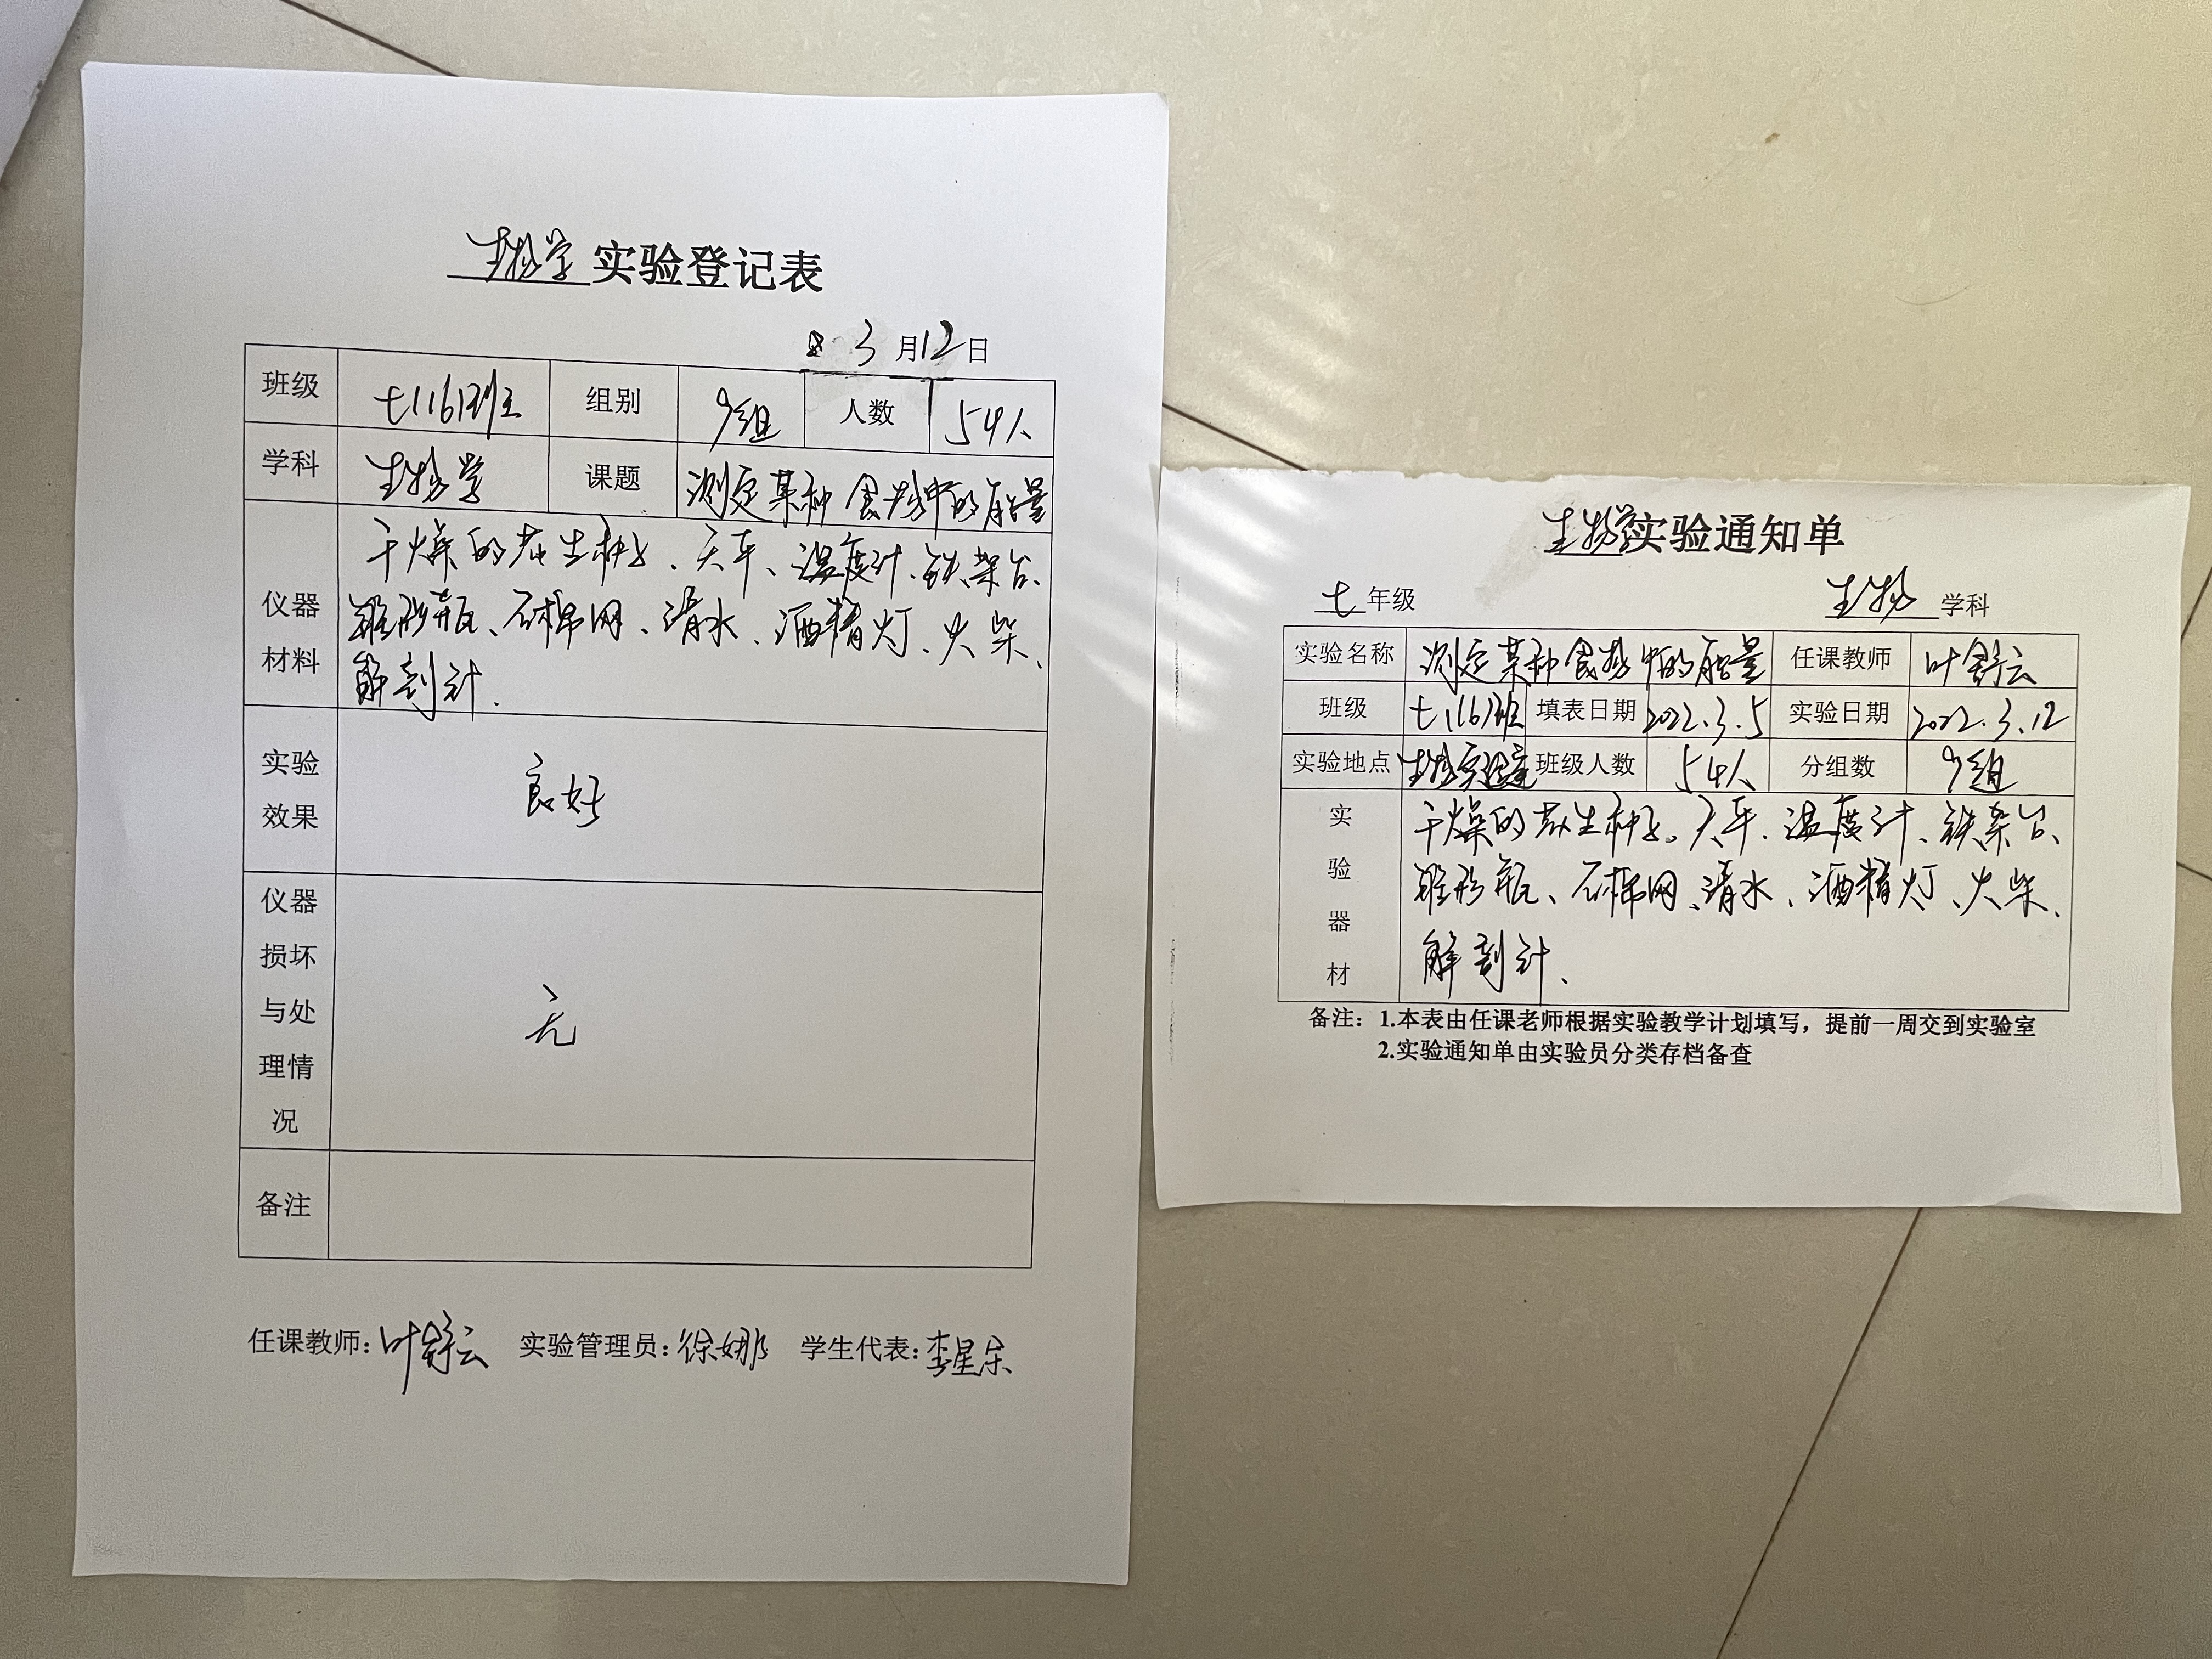 生物学实验登记表
3月12日
班级 七116班 组别 9组 人数 54人
学科 生物学 课题 测定某种食物中的能量
仪器材料 干燥的花生种子、天平、温度计、铁架台、
锥形瓶、石棉网、清水、酒精灯、火柴、
解剖针.
实验效果 良好
仪器损坏与处理情况 无
备注
任课教师:叶舒云 实验管理员:徐娜 学生代表:李星
生物学实验通知单
七年级 生物学科
实验名称 测定某种食物中的能量 任课教师 叶舒云
班级 七116班 填表日期 2022.3.5 实验日期 2022.3.12
实验地点 生物实验室 班级人数 54人 分组数 9组
实验器材 干燥的花生种子、天平、温度计、铁架台、
锥形瓶、石棉网、清水、酒精灯、火柴、
解剖针、
备注：1.本表由任课老师根据实验教学计划填写，提前一周交到实验室
2.实验通知单由实验员分类存档备查